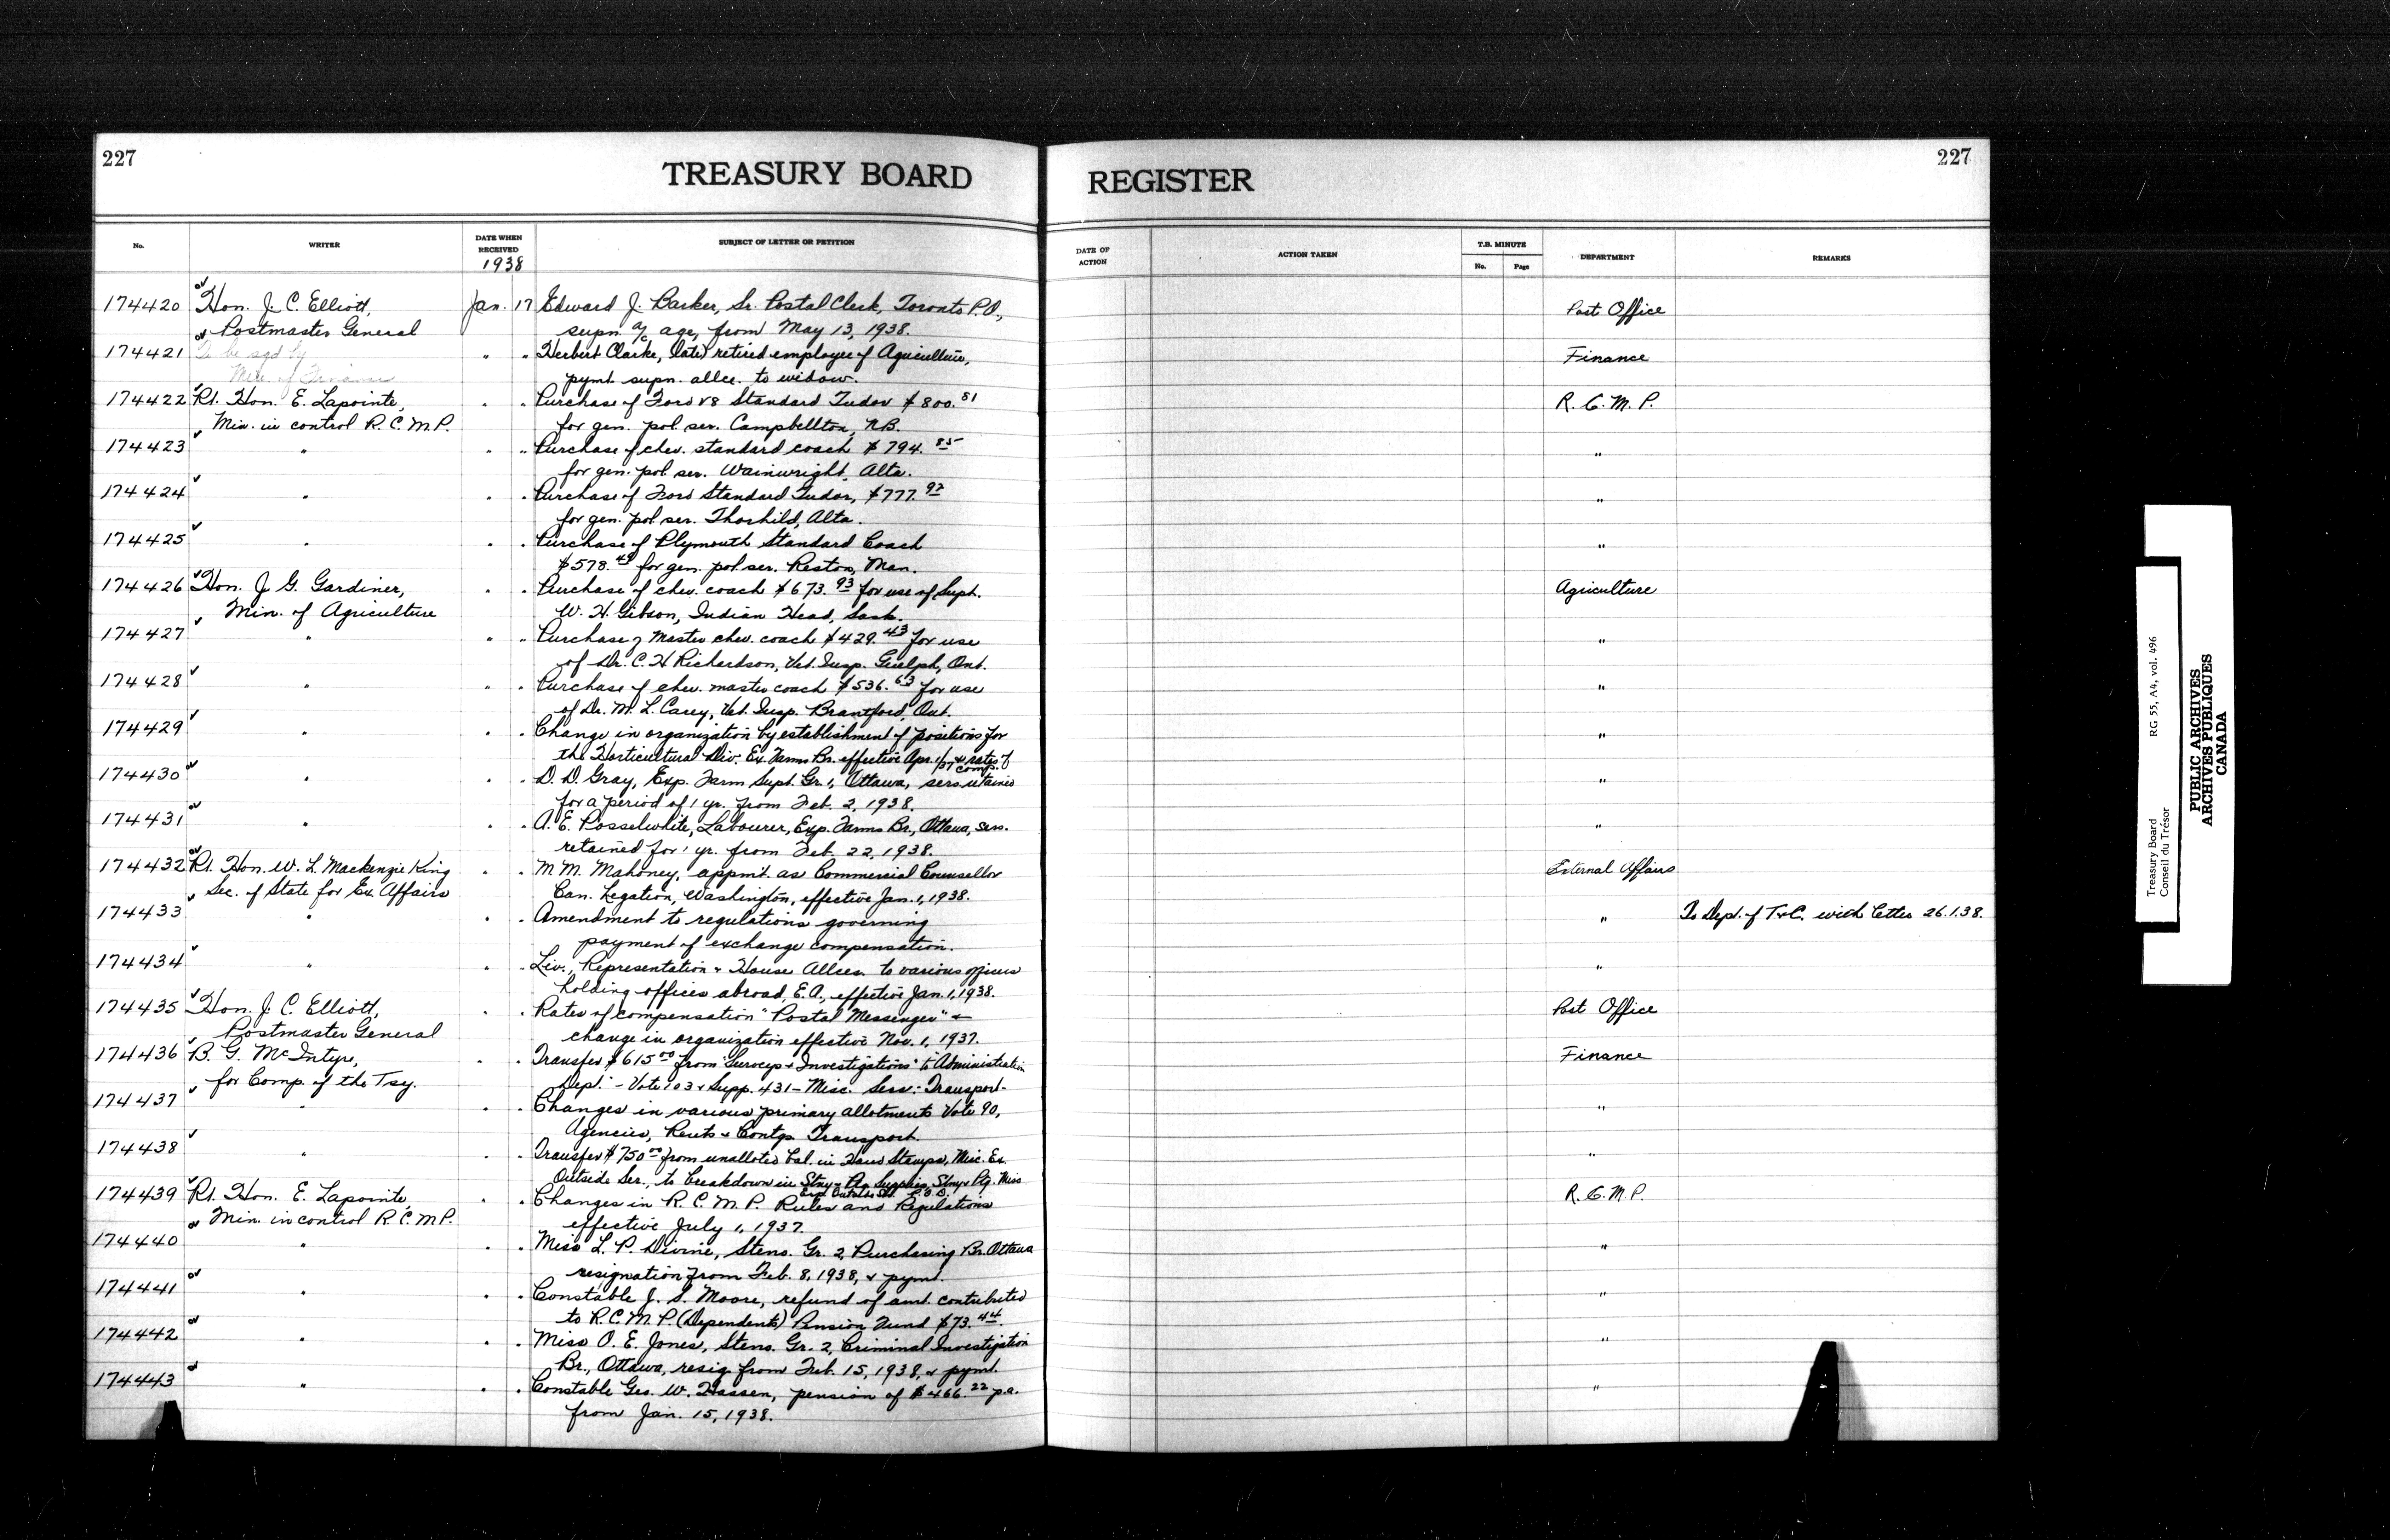 227
TREASURY BOARD
REGISTER
227
No.
WRITER
DATE WHEN RECEIVED
1938
SUBJECT OF LETTER OR PETITION
DATE OF ACTION
ACTION TAKEN
T.B. MINUTE
No.
Page
DEPARTMENT
REMARKS
174420 Hon. J. C. Elliott, Jan. 17 Edward J. Barker, Sr. Postal Clerk, Toronto P.O., Post Office
Postmaster General supn. a/c age, from May 13, 1938.
174421 To be sgd by " " Herbert Clarke, (late) retired employee of Agriculture, Finance
Min. of Finance pymt. supn. allce. to widow.
174422 Rt. Hon. E. Lapointe, " " Purchase of Ford V8 Standard Tudor $800.81 R.C.M.P.
Min. in control R.C.M.P. for gen. pol. ser. Campbellton, N.B.
174423 " " " Purchase of chev. standard coach $794.85 "
for gen. pol. ser. Wainwright, Alta.
174424 " " " Purchase of Ford Standard Tudor, $777.92 "
for gen. pol. ser. Thorhild, Alta.
174425 " " " Purchase of Plymouth Standard Coach "
$578.49 for gen. pol. ser. Reston, Man.
174426 Hon. J. G. Gardiner, " " Purchase of chev. coach $673.93 for use of Supt. Agriculture
Min. of Agriculture W. H. Gibson, Indian Head, Sask.
174427 " " " Purchase of Master chev. coach $429.43 for use "
of Dr. C. H Richardson, Vet. Insp. Guelph, Ont.
174428 " " " Purchase of chev. master coach $536.63 for use "
of Dr. M. L. Carey, Vet. Insp. Brantford, Ont.
174429 " " " Change in organization by establishment of positions for "
the Horticultural Div. Ex. Farms Br. effective Apr. 1/37 & rates of comp.
174430 " " " D. D. Gray, Exp. Farm Supt. Gr. 1, Ottawa, sers. retained "
for a period of 1 yr. from Feb. 2, 1938.
174431 " " " A. E. Posselwhite, Labourer, Exp. Farms Br., Ottawa, sers. "
retained for 1 yr. from Feb. 22, 1938.
174432 Rt. Hon. W. L. Mackenzie King " " M M. Mahoney, appmt. as Commercial Counsellor External Affairs
Sec. of State for Ex. Affairs Can. Legation, Washington, effective Jan. 1, 1938.
174433 " " " Amendment to regulations governing " To Dept. of T.&C. with letter 26.1.38.
payment of exchange compensation.
174434 " " " Liv., Representation & House Allces. to various officers "
holding offices abroad, E.A., effective Jan. 1, 1938.
174435 Hon. J. C. Elliott, " " Rates of compensation "Postal Messenger" & Post Office
Postmaster General change in organization effective Nov. 1, 1937.
174436 B. G. McIntyre, " " Transfer $615.00 from "Surveys & Investigations" to "Administration Finance
for Comp. of the Tsy. Dept." - Vote 103 & Supp. 431 - Misc. Serv: Transport-
174437 " " " Changes in various primary allotments Vote 90, "
Agencies, Rents & Contgs Transport.
174438 " " " Transfer $750.00 from unalloted bal. in Hand Stamps, Misc. Ex. "
Outside Ser., to breakdown in Stny & Ptg Supplies, Stny & Ptg. Misc
174439 Rt. Hon. E. Lapointe, " " Changes in R.C.M.P. Rules and Regulations R.C.M.P.
Min. in control R.C.M.P. effective July 1, 1937.
174440 " " " Miss L. P. Divine, Steno. Gr. 2, Purchasing Br. Ottawa "
resignation from Feb. 8, 1938, & pymt.
174441 " " " Constable J. S. Moore, refund of amt. contributed "
to R.C.M.P. (Dependents) Pension Fund $73.44.
174442 " " " Miss O. E. Jones, Steno. Gr. 2, Criminal Investigation "
Br., Ottawa, resig. from Feb. 15, 1938, & pymt.
174443 " " " Constable Geo. W. Hassen, pension of $466.22 p.a. "
from Jan. 15, 1938.
Treasury Board RG 55, A4, vol. 496
Conseil du Trésor
PUBLIC ARCHIVES
ARCHIVES PUBLIQUES
CANADA